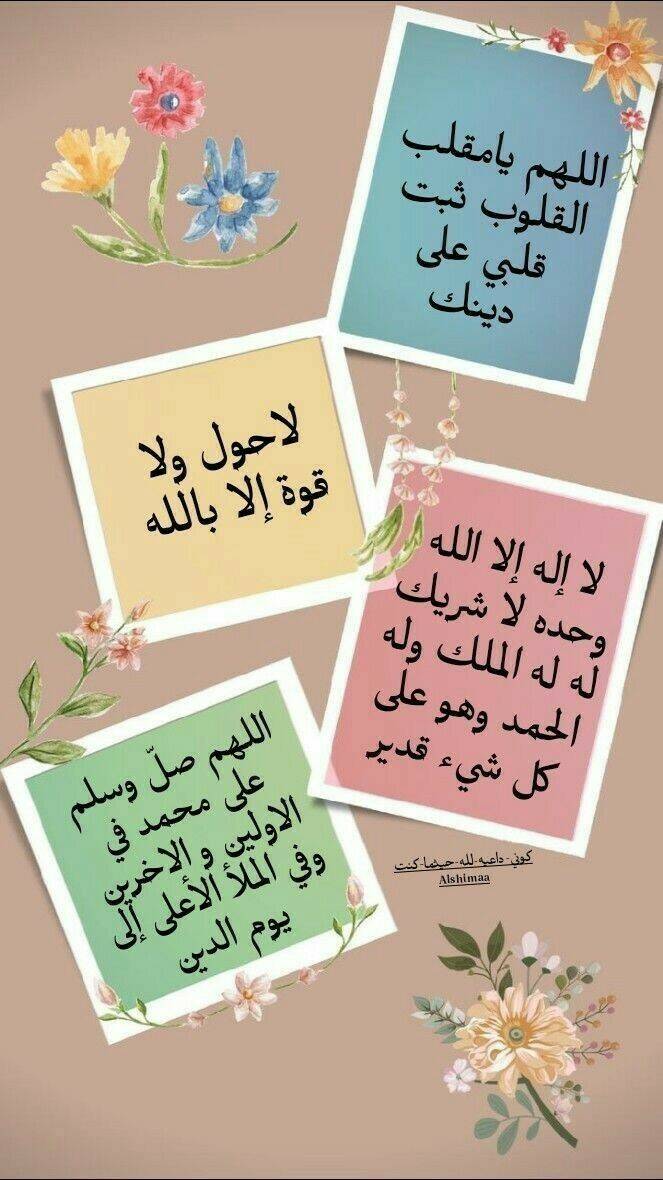 اللهم يامقلب
القلوب ثبت
قلبي على
دينك
لاحول ولا
قوة إلا بالله
لا إله إلا الله
وحده لا شريك
له له الملك وله
الحمد وهو على
كل شيء قدير
اللهم صلّ وسلم
على محمد في
الاولين والإخرين
وفي الملأ الأعلى إلى
يوم الدين
كوني-داعيه-لله-حيثما-كنت
Alshimaa